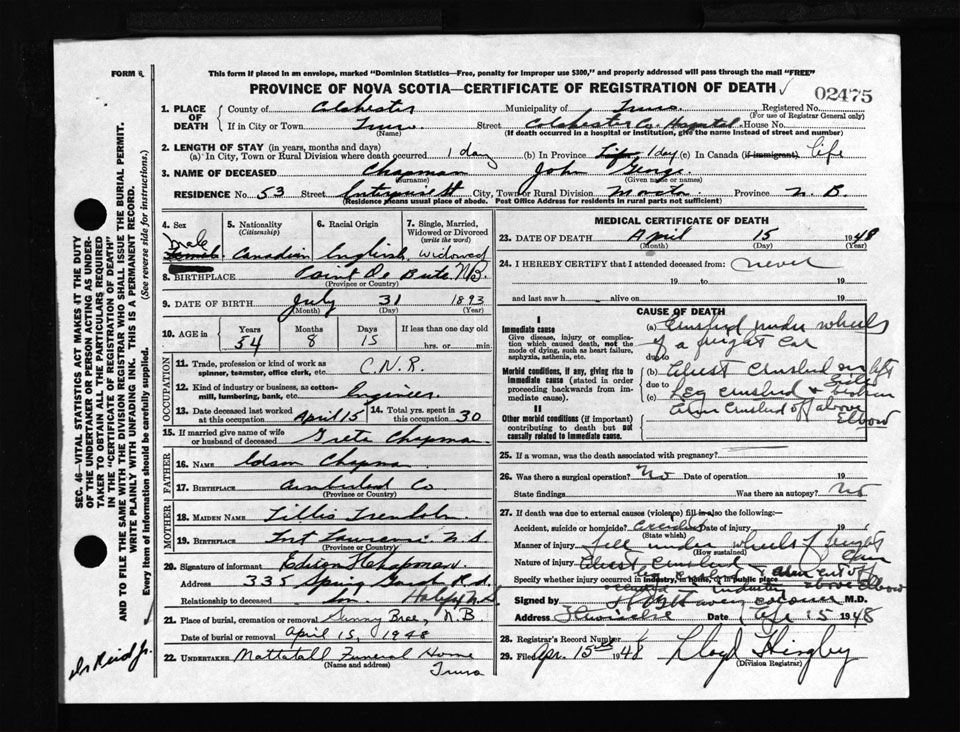 FORM 6.
This form if placed in an envelope, marked "Dominion Statistics—Free, penalty for improper use $300," and properly addressed will pass through the mail "FREE"
PROVINCE OF NOVA SCOTIA—CERTIFICATE OF REGISTRATION OF DEATH
02475
1. PLACE OF DEATH County of Colchester Municipality of Truro Registered No.
(For use of Registrar General only)
If in City or Town Truro Street Colchester Co. Hospital House No.
(Name) (If death occurred in a hospital or institution, give the name instead of street and number)
2. LENGTH OF STAY (in years, months and days)
(a) In City, Town or Rural Division where death occurred 1 day (b) In Province Life 1 day (c) In Canada (if immigrant) life
3. NAME OF DECEASED Chapman John George
(Surname) (Given name or names)
RESIDENCE No. 53 Street Enterprise St City, Town or Rural Division Moncton Province N. B.
(Residence means usual place of abode. Post Office Address for residents in rural parts not sufficient)
4. Sex Male Female
5. Nationality (Citizenship) Canadian
6. Racial Origin English
7. Single, Married, Widowed or Divorced (write the word) Widowed
8. BIRTHPLACE Point De Bute N.B.
(Province or Country)
9. DATE OF BIRTH July 31 1893
(Month) (Day) (Year)
10. AGE in Years Months Days If less than one day old
54 8 15 hrs. or min.
OCCUPATION
11. Trade, profession or kind of work as spinner, teamster, office clerk, etc. C.N.R.
12. Kind of industry or business, as cotton-mill, lumbering, bank, etc. Engineer
13. Date deceased last worked at this occupation April 15 14. Total yrs. spent in this occupation 30
15. If married give name of wife or husband of deceased Greta Chapman
FATHER
16. NAME Chapman
17. BIRTHPLACE Cumberland Co.
(Province or Country)
MOTHER
18. MAIDEN NAME Tillis Trenholm
19. BIRTHPLACE Fort Lawrence N.S
(Province or Country)
20. Signature of informant Edison Chapman
Address 335 Spring Garden Rd.
Relationship to deceased Son Halifax N.S
21. Place of burial, cremation or removal Sunny Brae, N.B.
Date of burial or removal April 15, 1948
22. UNDERTAKER Mattatall Funeral Home
(Name and address) Truro
MEDICAL CERTIFICATE OF DEATH
23. DATE OF DEATH April 15 1948
(Month) (Day) (Year)
24. I HEREBY CERTIFY that I attended deceased from: never
19 to 19
and last saw h alive on 19
CAUSE OF DEATH
I
Immediate cause
Give disease, injury or complication which caused death, not the mode of dying, such as heart failure, asphyxia, asthenia, etc.
(a) Crushed under wheels
of a freight car
due to
Morbid conditions, if any, giving rise to immediate cause (stated in order proceeding backwards from immediate cause).
(b) Chest Crushed on left side
due to
(c) Leg crushed &
arm Crushed off above
Elbow
II
Other morbid conditions (if important) contributing to death but not causally related to immediate cause.
25. If a woman, was the death associated with pregnancy?
26. Was there a surgical operation? No Date of operation 19
State findings Was there an autopsy? No
27. If death was due to external causes (violence) fill in also the following:—
Accident, suicide or homicide? Accident Date of injury 19
(State which)
Manner of injury fell under wheels of freight
(How sustained)
Nature of injury Chest Crushed
Specify whether injury occurred in industry, in home, or in public place
above Elbow
Signed by Coroner M.D.
Address Date Apr 15 1948
28. Registrar's Record Number
29. Filed Apr. 15th 1948 Lloyd
(Division Registrar)
SEC. 46—VITAL STATISTICS ACT MAKES IT THE DUTY
OF THE UNDERTAKER OR PERSON ACTING AS UNDER-
TAKER TO OBTAIN ALL THE PARTICULARS REQUIRED
IN THE "CERTIFICATE OF REGISTRATION OF DEATH"
AND TO FILE THE SAME WITH THE DIVISION REGISTRAR WHO SHALL ISSUE THE BURIAL PERMIT.
WRITE PLAINLY WITH UNFADING INK. THIS IS A PERMANENT RECORD.
Every item of Information should be carefully supplied. (See reverse side for instructions.)
Dr Reid Jr.